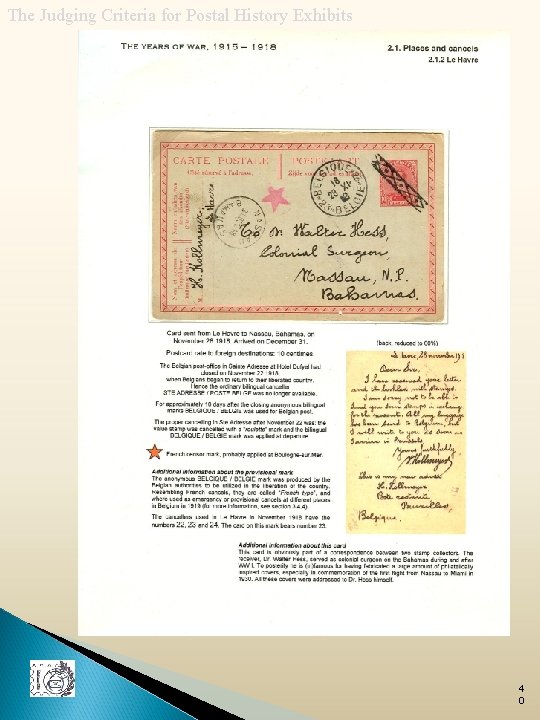 The Judging Criteria for Postal History Exhibits
THE YEARS OF WAR, 1915 – 1918
2.1. Places and cancels
2.1.2 Le Havre
CARTE POSTALE
POSTK
Côté réservé à l'adresse.
BELGIQUE
BELGIE
To Dr. Walter Hess,
Colonial Surgeon,
Nassau, N.P.
Bahamas.
H. Kollmeyer,
Card sent from Le Havre to Nassau, Bahamas, on
November 28 1918. Arrived on December 31.
Postcard rate to foreign destinations: 10 centimes.
The Belgian post-office in Sainte Adresse at Hotel Dufayel had
closed on November 22 1918
when Belgians began to return to their liberated country.
Hence the ordinary bilingual canceller
STE ADRESSE / POSTE BELGE was no longer available.
For approximately 10 days after the closing anonymous bilingual
marks BELGIQUE / BELGIE was used for Belgian post.
The proper cancelling in Ste Adresse after November 22 was: the
value stamp was cancelled with a "roulette" mark and the bilingual
BELGIQUE / BELGIE mark was applied at departure.
French censor mark, probably applied at Boulogne-sur-Mer.
Additional information about the provisional mark
The anonymous BELGIQUE / BELGIE mark was produced by the
Belgian authorities to be utilized in the liberation of the country.
Resembling French cancels, they are called "French type", and
where used as emergency or provisional cancels at different places
in Belgium in 1919 (for more information, see section 3.4.4).
The cancellers used in Le Havre in November 1918 have the
numbers 22, 23 and 24. The card on this mark bears number 23.
(back, reduced to 60%)
Le Havre, 28 november 1918
Dear Sir,
I have received your letter
and its inclosed with stamps.
I am sorry not to be able to
send you some stamps in exchange
for the moment. All my luggage
has been send to Belgium, but
I will write to you as soon as
I arrive in Brussels
Yours faithfully
H Kollmeyer
This is my new adress
H. Kollmeyer
Poste restante
Bruxelles,
Belgique.
Additional information about this card
This card is obviously part of a correspondence between two stamp collectors. The
receiver, Dr. Walter Hess, served as colonial surgeon on the Bahamas during and after
WW I. To posterity he is (in)famous for having fabricated a large amount of philatelically
inspired covers, especially in commemoration of the first flight from Nassau to Miami in
1930. All these covers were addressed to Dr. Hess himself.
4
0